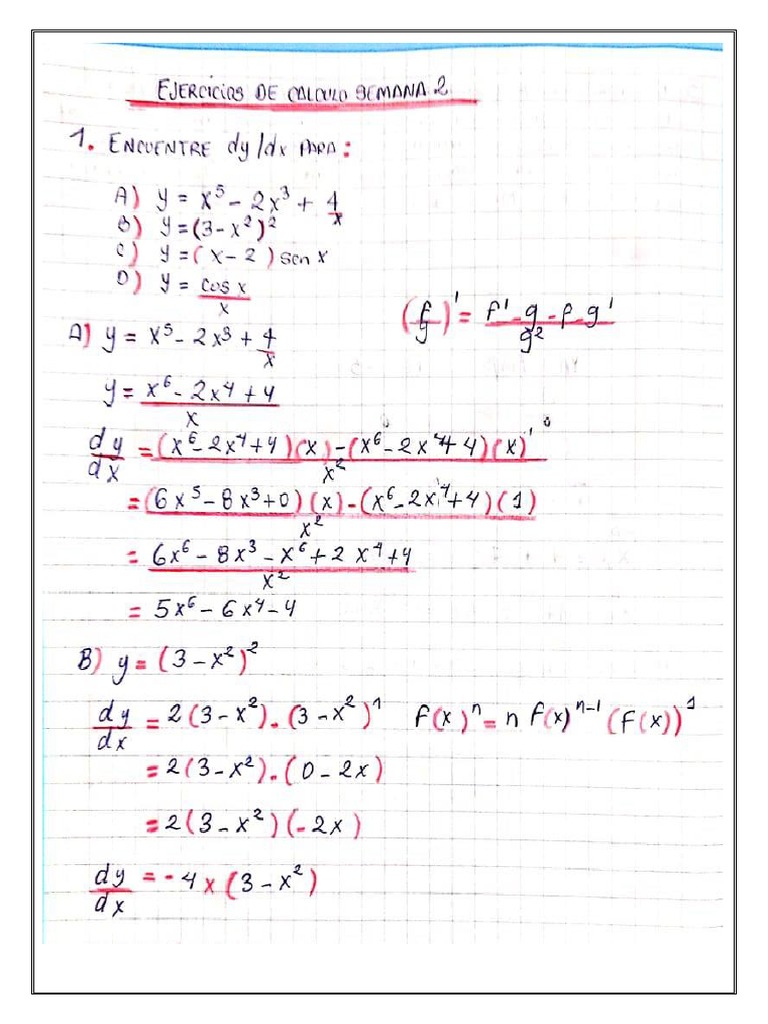 EJERCICIOS DE CALCULO SEMANA 2
1. ENCUENTRE dy/dx PARA:
A) y = x⁵ - 2x³ + 4/x
B) y = (3 - x²)²
C) y = (x - 2) sen x
D) y = cos x/x
(f/g)' = f' - g - f - g'/g²
A) y = x⁵ - 2x³ + 4/x
y = x⁶ - 2x⁴ + 4/x
dy/dx = (x⁶ - 2x⁴ + 4)(x) - (x⁶ - 2x⁴ + 4)(x)'/x²
= (6x⁵ - 8x³ + 0)(x) - (x⁶ - 2x⁴ + 4)(1)/x²
= 6x⁶ - 8x³ - x⁶ + 2x⁴ + 4/x²
= 5x⁶ - 6x⁴ - 4
B) y = (3 - x²)²
dy/dx = 2(3 - x²) . (3 - x²)¹ f(x)ⁿ = n f(x)ⁿ⁻¹ (f(x))¹
= 2(3 - x²) . (0 - 2x)
= 2(3 - x²)(-2x)
dy/dx = -4x(3 - x²)